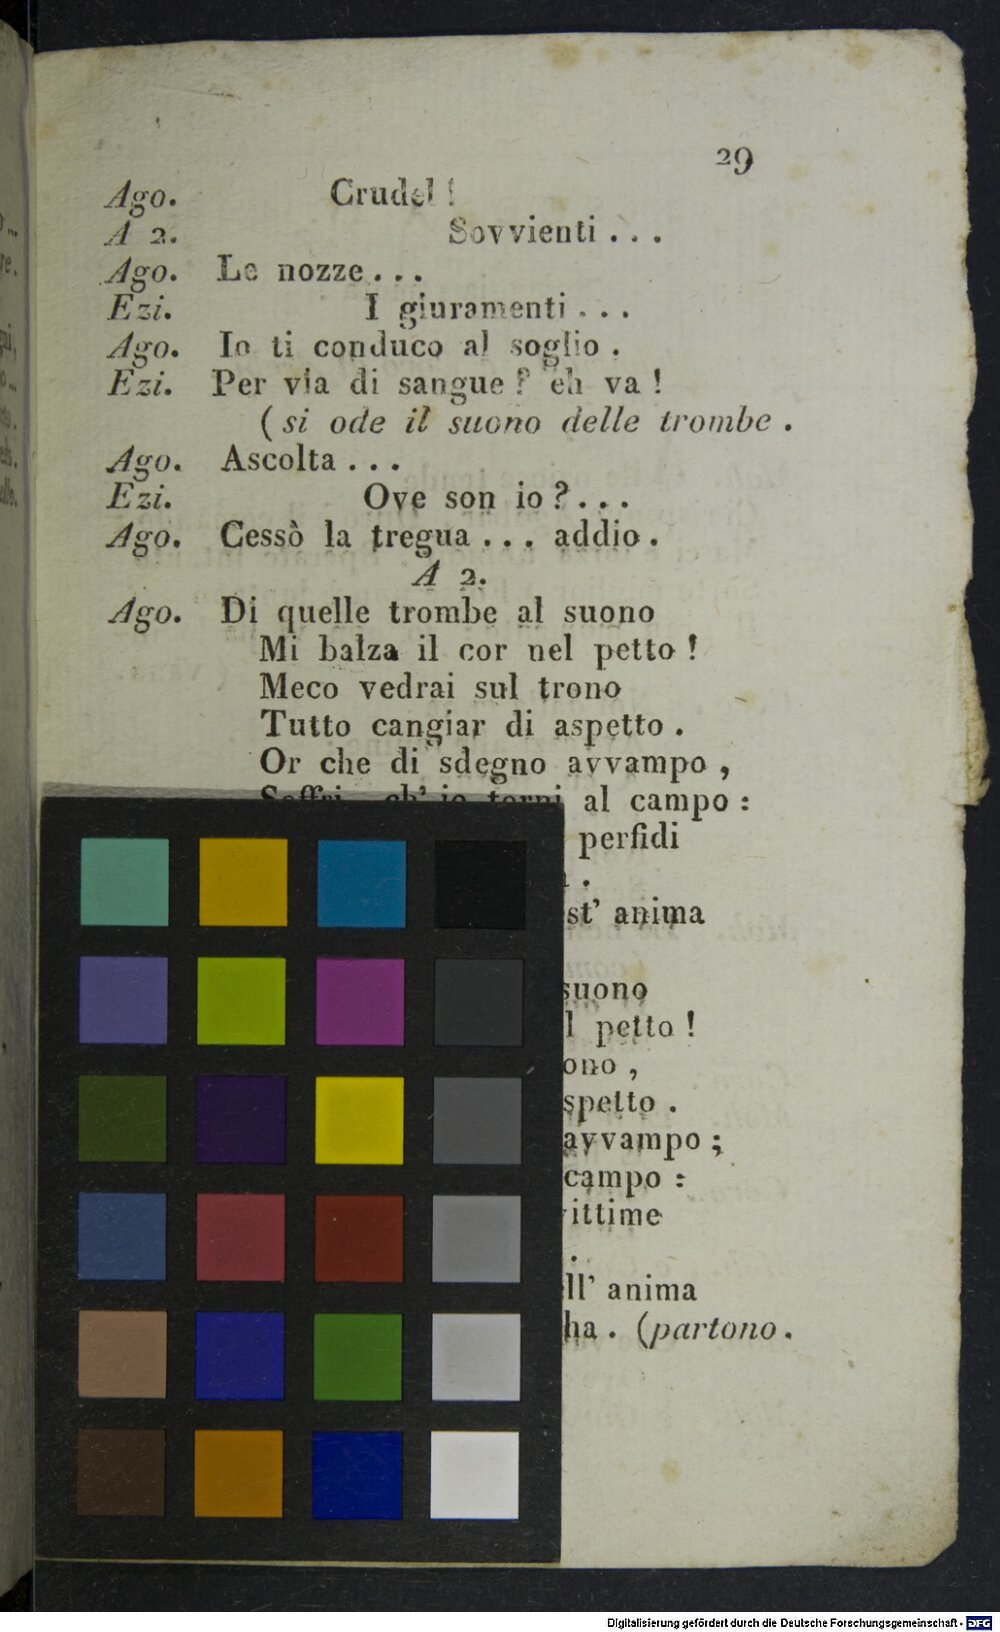 29
Ago. Crudel !
A 2. Sovvienti . . .
Ago. Le nozze . . .
Ezi. I giuramenti . . .
Ago. Io ti conduco al soglio .
Ezi. Per via di sangue ? eh va !
( si ode il suono delle trombe .
Ago. Ascolta . . .
Ezi. Ove son io ? . . .
Ago. Cessò la tregua . . . addio .
A 2.
Ago. Di quelle trombe al suono
Mi balza il cor nel petto !
Meco vedrai sul trono
Tutto cangiar di aspetto .
Or che di sdegno avvampo ,
Soffri ch' io torni al campo :
perfidi
.
st' anima
suono
l petto !
ono ,
spetto .
avvampo ;
campo :
ittime
.
ll' anima
ha . (partono .
Digitalisierung gefördert durch die Deutsche Forschungsgemeinschaft - DFG